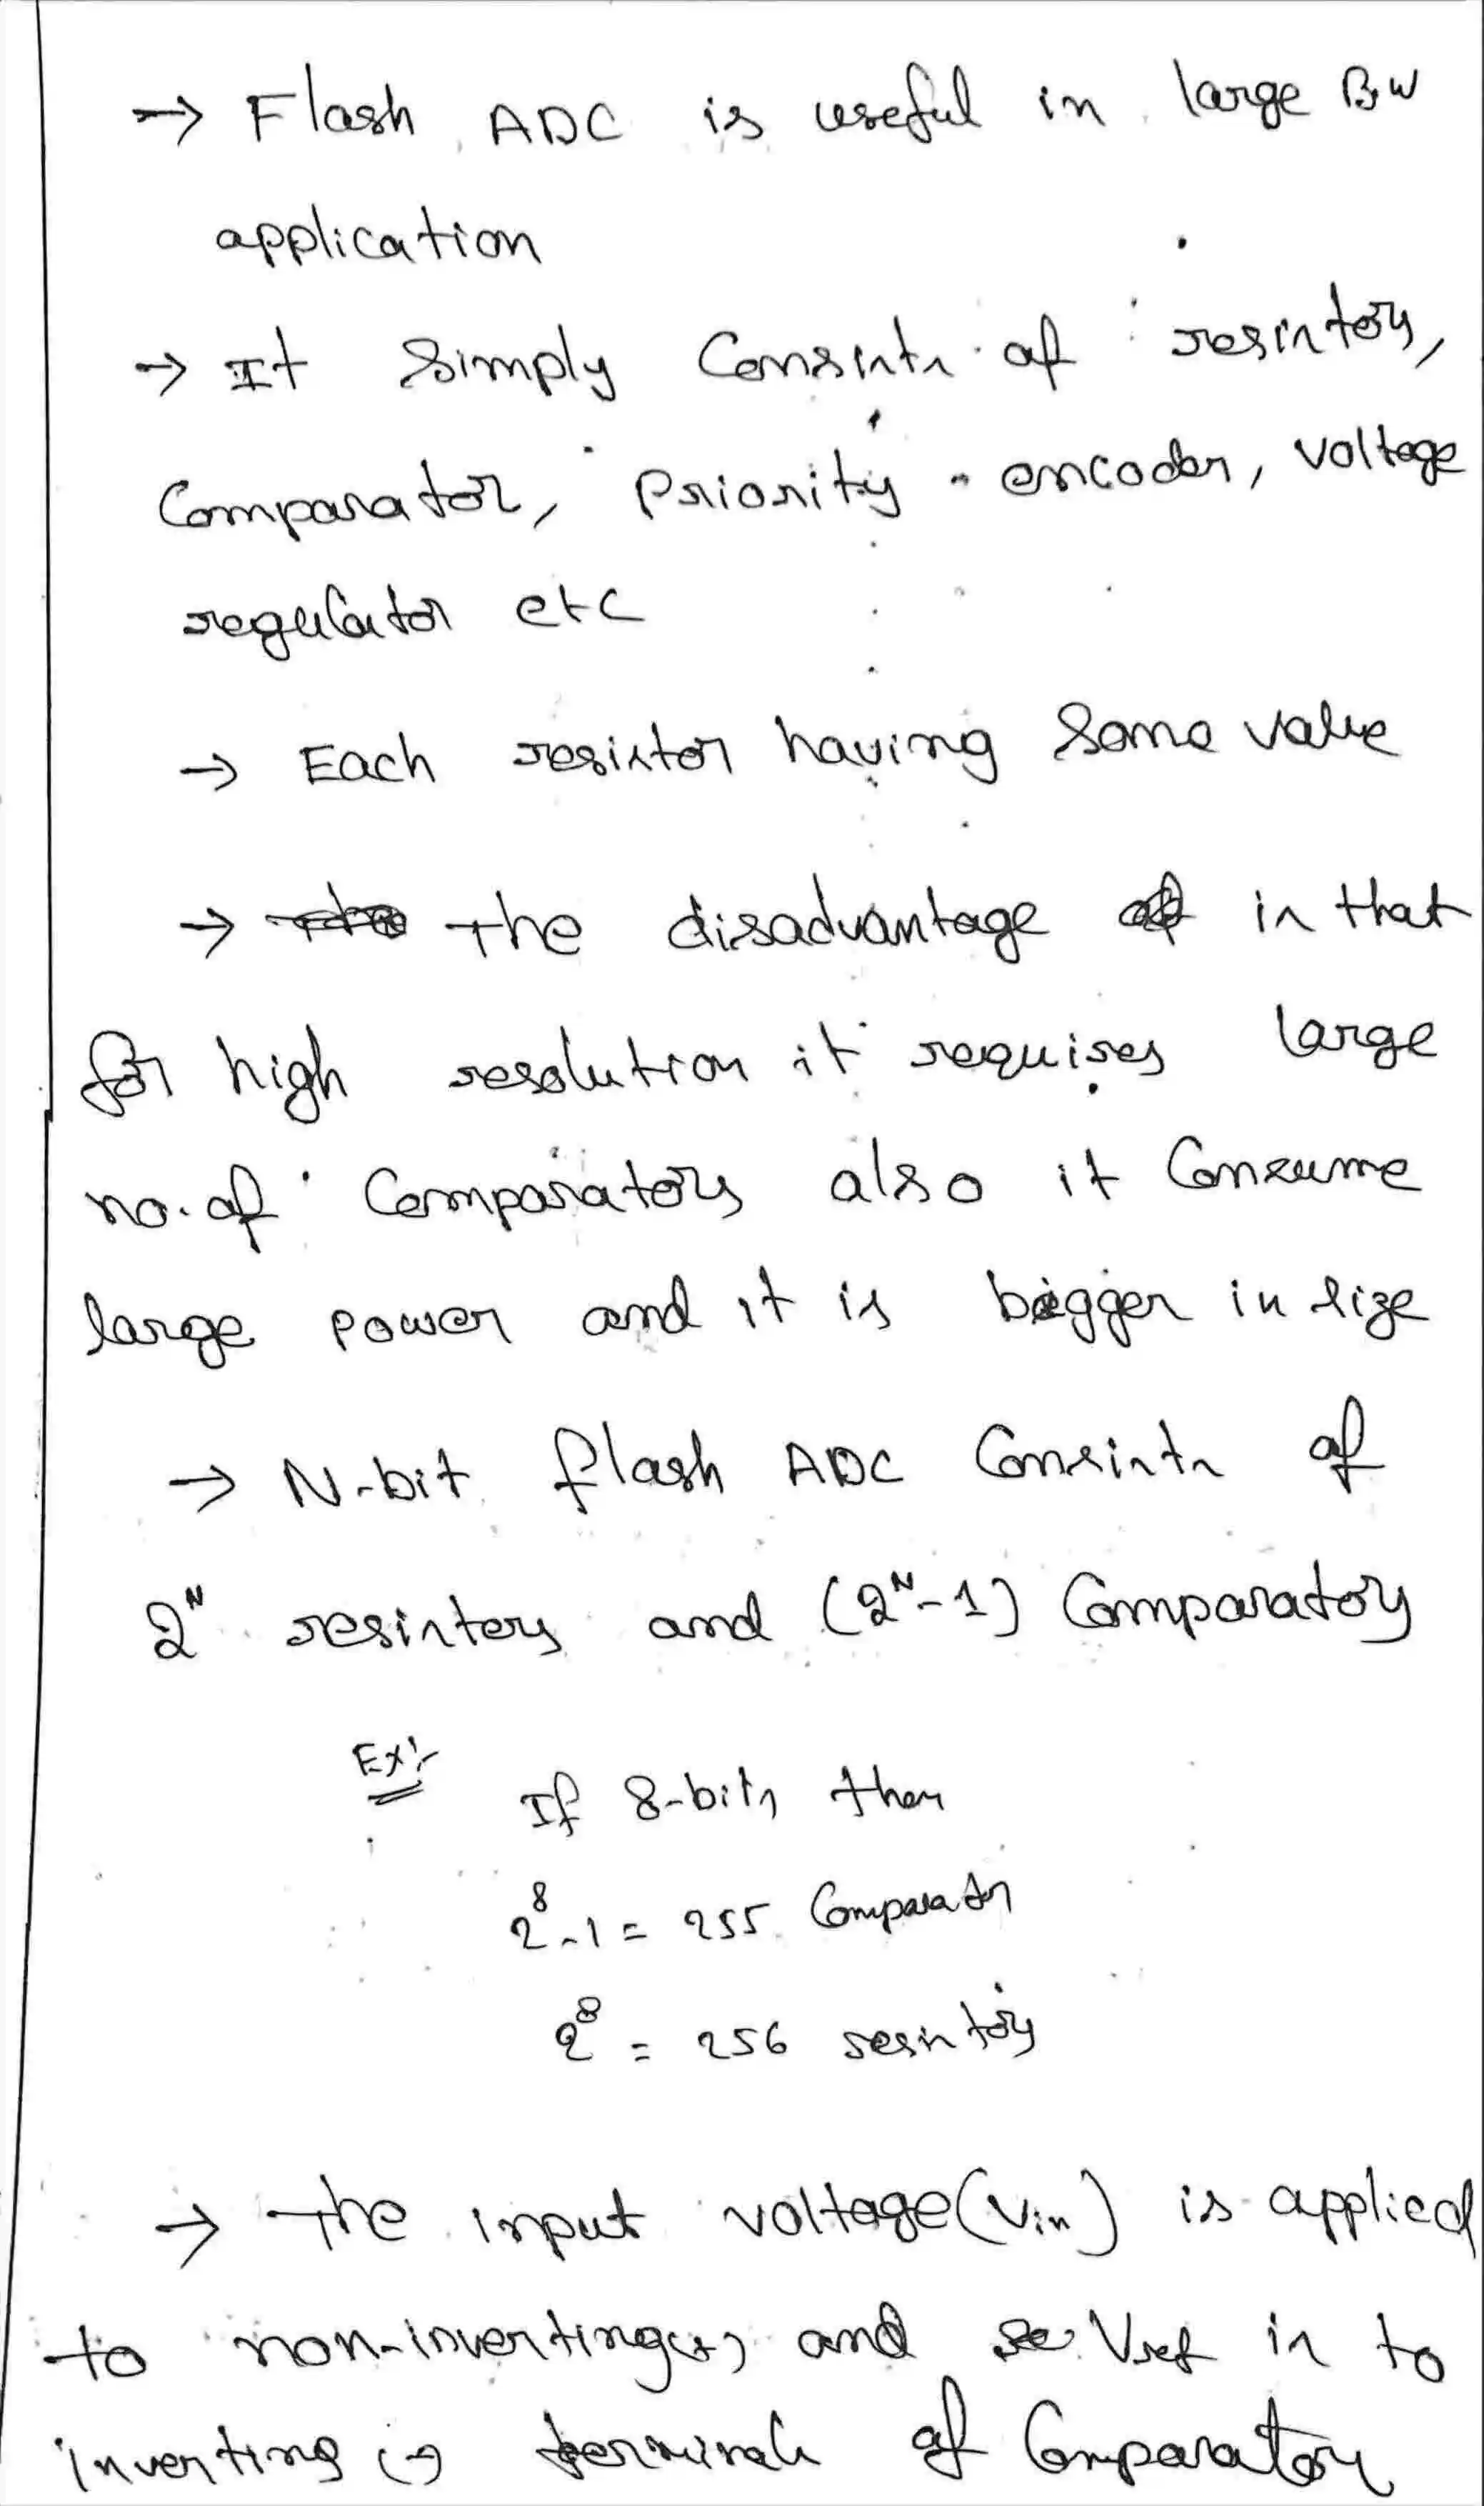 → Flash ADC is useful in large BW
application
→ It Simply Consists of resistors,
Comparator, Priority encoder, voltage
regulator etc
→ Each resistor having Same value
→ the disadvantage is that
for high resolution it requires large
no. of Comparators also it Consume
large power and it is bigger in size
→ N-bit flash ADC Consists of
2ᴺ resistors and (2ᴺ-1) Comparators
Ex:- If 8-bits then
2⁸-1 = 255 Comparator
2⁸ = 256 resistors
→ the input voltage (Vin) is applied
to non-inverting(+) and Vref is to
inverting (-) terminals of Comparators